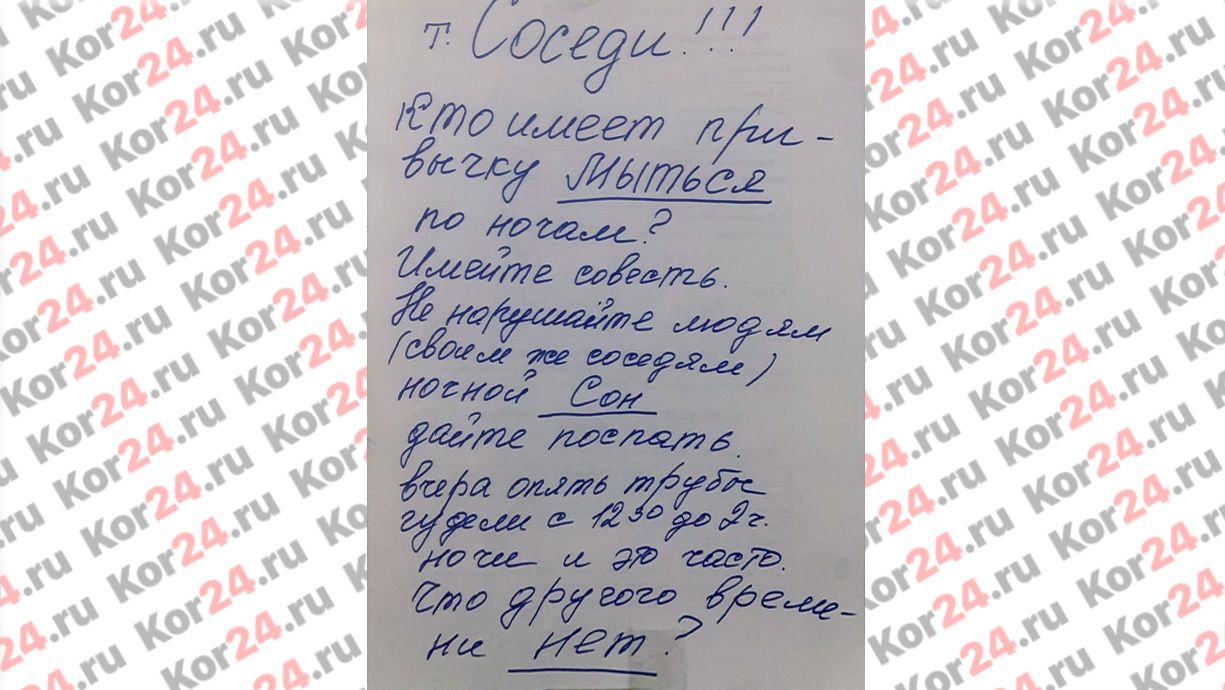 т. Соседи!!!
Кто имеет при-
вычку Мыться
по ночам?
Имейте совесть.
Не нарушайте людям
(своим же соседям)
ночной Сон
дайте поспать.
вчера опять трубы
гудели с 12³⁰ до 2 ч.
ночи и это часто.
Что другого време-
ни нет?
Kor24.ru